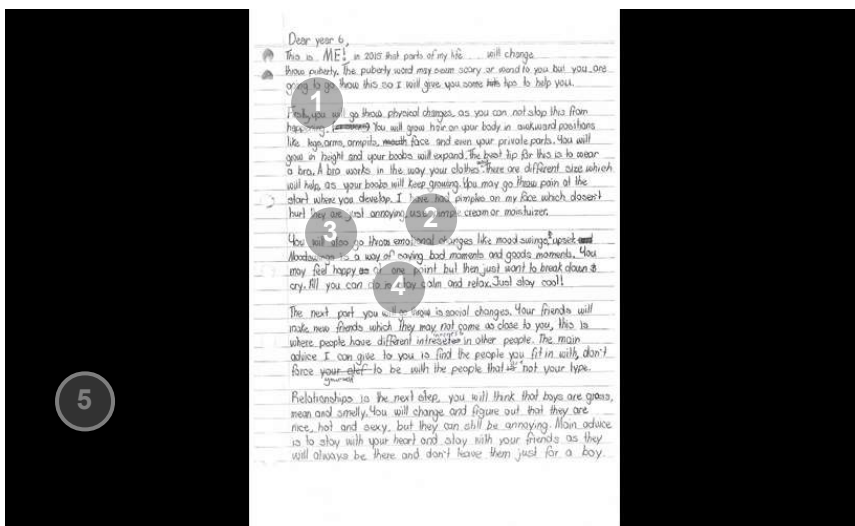 Dear year 6,
This is ME! in 2015 that parts of my life will change
throw puberty. The puberty word may seem scary or weird to you but you are
going to go throw this so I will give you some tips to help you.
1
Firstly, you will go throw physical changes, as you can not stop this from
happening. You will grow hair on your body in awkward positions
like legs, arms, armpits, mouth face and even your private parts. You will
grow in height and your boobs will expand. The best tip for this is to wear
a bra. A bra works in the way your clothes there are different size which
will help, as your boobs will keep growing. You may go throw pain at the
start where you develop. I have had pimples on my face which doesn't
2
hurt they are just annoying, use pimple cream or moisturizer.
3
You will also go throw emotional changes like mood swings, & upset
Moodswings is a way of saying bad moments and goods moments. You
may feel happy as at one point but then just want to break down &
cry. All you can do is stay calm and relax. Just stay cool!
4
The next part you will go throw is social changes. Your friends will
make new friends which they may not come as close to you, this is
where people have different in other people. The main
advice I can give to you is find the people you fit in with, don't
force yourself to be with the people that not your type.
5
Relationships is the next step, you will think that boys are gross,
mean and smelly. You will change and figure out that they are
nice, hot and sexy, but they can still be annoying. Main advice
is to stay with your heart and stay with your friends as they
will always be there and don't leave them just for a boy.